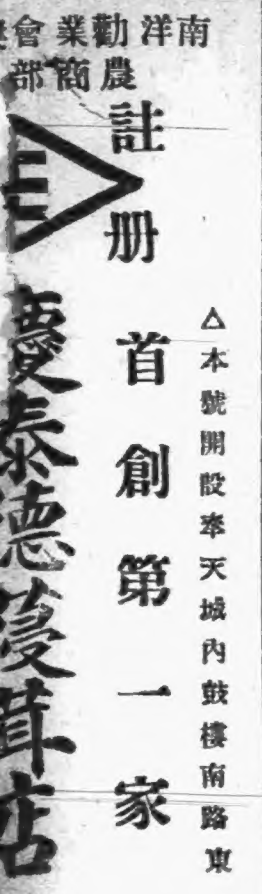 南洋勸業會
農商部
△本號開設奉天城內鼓樓南路東
註册首創第一家
慶泰德葠茸店